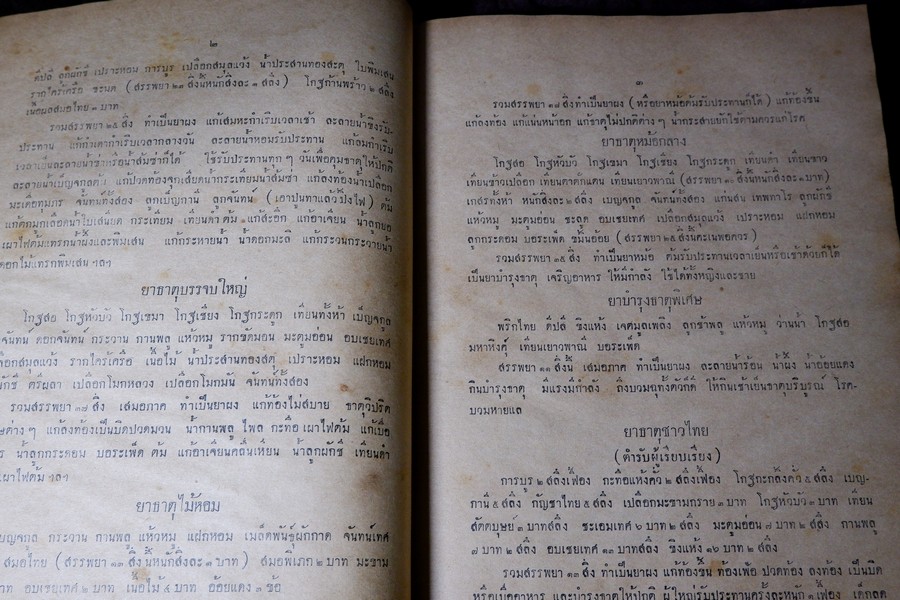 ๒
ดีปลี ลูกผักชี เปราะหอม การบูร เปลือกสมุลแว้ง น้ำประสานทองสะตุ ใบพิมเสน
รากไคร้เครือ ชะมด (สรรพยา ๒๓ สิ่งนี้หนักสิ่งละ ๑ สลึง) โกฐก้านพร้าว ๒ สลึง
เนื้อผลสมอไทย ๓ บาท
รวมสรรพยา ๒๕ สิ่ง ทำเป็นยาผง แก้เสมหะกำเริบเวลาเช้า ละลายน้ำขิงรับ-
ประทาน แก้กำเดากำเริบเวลากลางวัน ละลายน้ำหอมรับประทาน แก้ลมกำเริบ
เวลาเย็นละลายน้ำข่าหรือน้ำส้มซ่าก็ได้ ใช้รับประทานทุก ๆ วันเพื่อคุมธาตุให้ปกติ
ละลายน้ำเบ็ญจกูลต้ม แก้ปวดท้องจุกเสียดน้ำกระเทียมน้ำส้มซ่า แก้ลงท้องน้ำเปลือก
มะเดื่อชุมภร จันทน์ทั้งสอง ลูกเบญกานี ลูกจันทน์ (เอาปูนทาแล้วปิ้งไฟ) ต้ม
แก้ตกมูกเลือดน้ำใบเสนียด กระเทียม เทียนดำ ต้ม แก้สะอึก แก้อาเจียน น้ำลูกยอ
เผาไฟต้มแทรกน้ำผึ้งและพิมเสน แก้กระหายน้ำ น้ำดอกมะลิ แก้กระวนกระวายน้ำ
ดอกไม้แทรกพิมเสน ฯลฯ
ยาธาตุบรรจบใหญ่
โกฐสอ โกฐหัวบัว โกฐเขมา โกฐเชียง โกฐกระดูก เทียนทั้งห้า เบ็ญจกูล
จันทน์ ดอกจันทน์ กระวาน กานพลู แห้วหมู รากขัดมอน มะตูมอ่อน อบเชยเทศ
เปลือกสมุลแว้ง รากไคร้เครือ เนื้อไม้ น้ำประสานทองสตุ เปราะหอม แฝกหอม
ผักชี ตรีผลา เปลือกโมกหลวง เปลือกโมกมัน จันทน์ทั้งสอง
รวมสรรพยา ๓๗ สิ่ง เสมอภาค ทำเป็นยาผง แก้ท้องไม่สบาย ธาตุวิปริต
ต่าง ๆ แก้ลงท้องเป็นบิดปวดมวน น้ำกานพลู ไพล กะทือ เผาไฟต้ม แก้เบื่อ
น้ำลูกกระดอม บอระเพ็ด ต้ม แก้อาเจียนคลื่นเหียน น้ำลูกผักชี เทียนดำ
เผาไฟต้ม ฯลฯ
ยาธาตุไม้หอม
เบญจกูล กระวาน กานพลู แห้วหมู แฝกหอม เมล็ดพันธุ์ผักกาด จันทน์เทศ
สมอไทย (สรรพยา ๑๓ สิ่งนี้หนักสิ่งละ ๑ บาท) สมอพิเภก ๒ บาท มะขาม
บาท อบเชยเทศ ๒ บาท เนื้อไม้ ๔ บาท อ้อยแดง ๓ ข้อ
๓
รวมสรรพยา ๑๗ สิ่งทำเป็นยาผง (หรือยาหม้อต้มรับประทานก็ได้) แก้ท้องขึ้น
แก้ลงท้อง แก้แน่นหน้าอก แก้ธาตุไม่ปกติต่าง ๆ น้ำกระสายยักใช้ตามควรแก่โรค
ยาธาตุหม้อกลาง
โกฐสอ โกฐหัวบัว โกฐเขมา โกฐเชียง โกฐกระดูก เทียนดำ เทียนขาว
เทียนข้าวเปลือก เทียนตาตั๊กแตน เทียนเยาวพาณี (สรรพยา ๑๐ สิ่งนี้หนักสิ่งละ ๑ บาท)
เกสรทั้งห้า หนักสิ่งละ ๒ สลึง เบญจกูล จันทน์ทั้งสอง แก่นสน เทพทาโร ลูกผักชี
แห้วหมู มะตูมอ่อน ชะลูด อบเชยเทศ เปลือกสมุลแว้ง เปราะหอม แฝกหอม
ลูกกระดอม บอระเพ็ด ขมิ้นอ้อย (สรรพยา ๒๕ สิ่งนี้คะเนพอควร)
รวมสรรพยา ๓๕ สิ่ง ทำเป็นยาหม้อ ต้มรับประทานเวลาเย็นหรือเช้าด้วยก็ได้
เป็นยาบำรุงธาตุ เจริญอาหาร ให้มีกำลัง ใช้ได้ทั้งหญิงและชาย
ยาบำรุงธาตุพิเศษ
พริกไทย ดีปลี ขิงแห้ง เจตมูลเพลิง ลูกช้าพลู แห้วหมู ว่านน้ำ โกฐสอ
มหาหิงคุ์ เทียนเยาวพาณี บอระเพ็ด
สรรพยา ๑๑ สิ่งนี้ เสมอภาค ทำเป็นยาผง ละลายน้ำร้อน น้ำผึ้ง น้ำอ้อยแดง
กินบำรุงธาตุ มีแรงมีกำลัง ถึงบวมฉุทั้งตัวก็ดี ให้กินเช้าเย็นธาตุบริบูรณ์ โรค-
บวมหายแล
ยาธาตุชาวไทย
(ตำรับผู้เรียบเรียง)
การบูร ๒ สลึงเฟื้อง กะทือแห้งคั่ว ๒ สลึงเฟื้อง โกฐกะกลิ้งคั่ว ๕ สลึง เบญ-
กานี ๕ สลึง กัญชาไทย ๕ สลึง เปลือกมะขามกราย ๓ บาท โกฐหัวบัว ๓ บาท เทียน
สัตตบุษย์ ๓ บาทสลึง ชะเอมเทศ ๖ บาท ๒ สลึง มะตูมอ่อน ๗ บาท ๒ สลึง กานพลู
๗ บาท ๒ สลึง อบเชยเทศ ๑๓ บาทสลึง ขิงแห้ง ๑๖ บาท ๒ สลึง
รวมสรรพยา ๑๓ สิ่ง ทำเป็นยาผง แก้ท้องขึ้น ท้องเฟ้อ ปวดท้อง ลงท้อง เป็นบิด
หรือเบื่ออาหาร และบำรุงธาตุให้ปกติ ผู้ใหญ่รับประทานครั้งละหนัก ๑ เฟื้อง เด็กลด